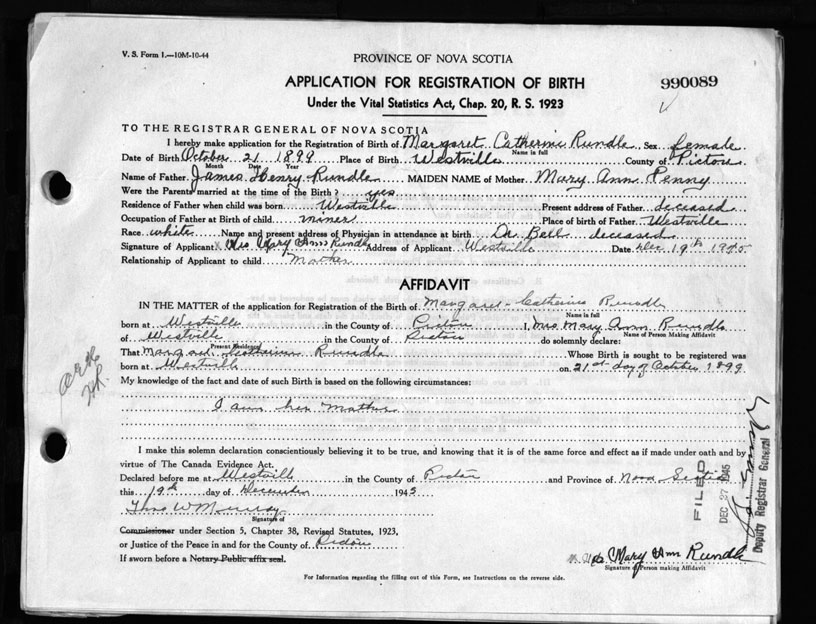 V. S. Form 1.—10M-10-44
PROVINCE OF NOVA SCOTIA
APPLICATION FOR REGISTRATION OF BIRTH
990089
Under the Vital Statistics Act, Chap. 20, R. S. 1923
TO THE REGISTRAR GENERAL OF NOVA SCOTIA
I hereby make application for the Registration of Birth of Margaret Catherine Rundle Sex female
Name in full
Date of Birth October 21 1899 Place of Birth Westville County of Pictou
Month Date Year
Name of Father James Henry Rundle MAIDEN NAME of Mother Mary Ann Penny
Were the Parents married at the time of the Birth? yes
Residence of Father when child was born Westville Present address of Father deceased
Occupation of Father at Birth of child miner Place of birth of Father Westville
Race white Name and present address of Physician in attendance at birth Dr Bell deceased
Signature of Applicant x Mrs Mary Ann Rundle Address of Applicant Westville Date Dec 19th 1945
Relationship of Applicant to child Mother
AFFIDAVIT
IN THE MATTER of the application for Registration of the Birth of Margaret Catherine Rundle
Name in full
born at Westville in the County of Pictou I, Mrs Mary Ann Rundle
Name of Person Making Affidavit
of Westville in the County of Pictou do solemnly declare:
Present Residence
That Margaret Catherine Rundle Whose Birth is sought to be registered was
born at Westville on 21st day of October 1899
My knowledge of the fact and date of such Birth is based on the following circumstances:
I am her mother
I make this solemn declaration conscientiously believing it to be true, and knowing that it is of the same force and effect as if made under oath and by
virtue of The Canada Evidence Act.
Declared before me at Westville in the County of Pictou and Province of Nova Scotia
this 19th day of December 1945
Thos W Murray
Signature of
Commissioner under Section 5, Chapter 38, Revised Statutes, 1923,
or Justice of the Peace in and for the County of Pictou
If sworn before a Notary Public affix seal.
x Mrs Mary Ann Rundle
Signature of Person making Affidavit
For Information regarding the filling out of this Form, see Instructions on the reverse side.
FILED
DEC 27 1945
Deputy Registrar General